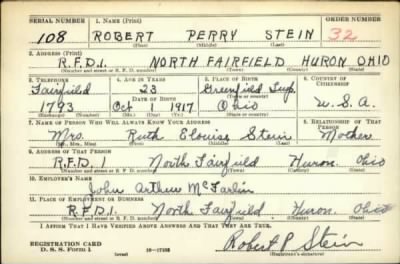 SERIAL NUMBER 1. NAME (Print) ORDER NUMBER
108 ROBERT PERRY STEIN 32
(First) (Middle) (Last)
2. ADDRESS (Print)
R.F.D.1. NORTH FAIRFIELD HURON OHIO
(Number and street or R. F. D. number) (Town) (County) (State)
3. TELEPHONE 4. AGE IN YEARS 5. PLACE OF BIRTH 6. COUNTRY OF CITIZENSHIP
Fairfield 23 Greenfield Twp.
DATE OF BIRTH
1793 Oct 1 1917 Ohio U.S.A.
(Exchange) (Number) (Mo.) (Day) (Yr.) (State or country)
7. NAME OF PERSON WHO WILL ALWAYS KNOW YOUR ADDRESS 8. RELATIONSHIP OF THAT PERSON
Mrs. Ruth Elouise Stein Mother
(Mr., Mrs., Miss) (First) (Middle) (Last)
9. ADDRESS OF THAT PERSON
R.F.D. 1 North Fairfield Huron Ohio
(Number and street or R. F. D. number) (Town) (County) (State)
10. EMPLOYER'S NAME
John Arthur McFarlin
11. PLACE OF EMPLOYMENT OR BUSINESS
R.F.D.1. North Fairfield Huron Ohio
(Number and street or R. F. D. number) (Town) (County) (State)
I AFFIRM THAT I HAVE VERIFIED ABOVE ANSWERS AND THAT THEY ARE TRUE.
REGISTRATION CARD Robert P Stein
D. S. S. Form 1 (over) 16—17105 (Registrant's signature)